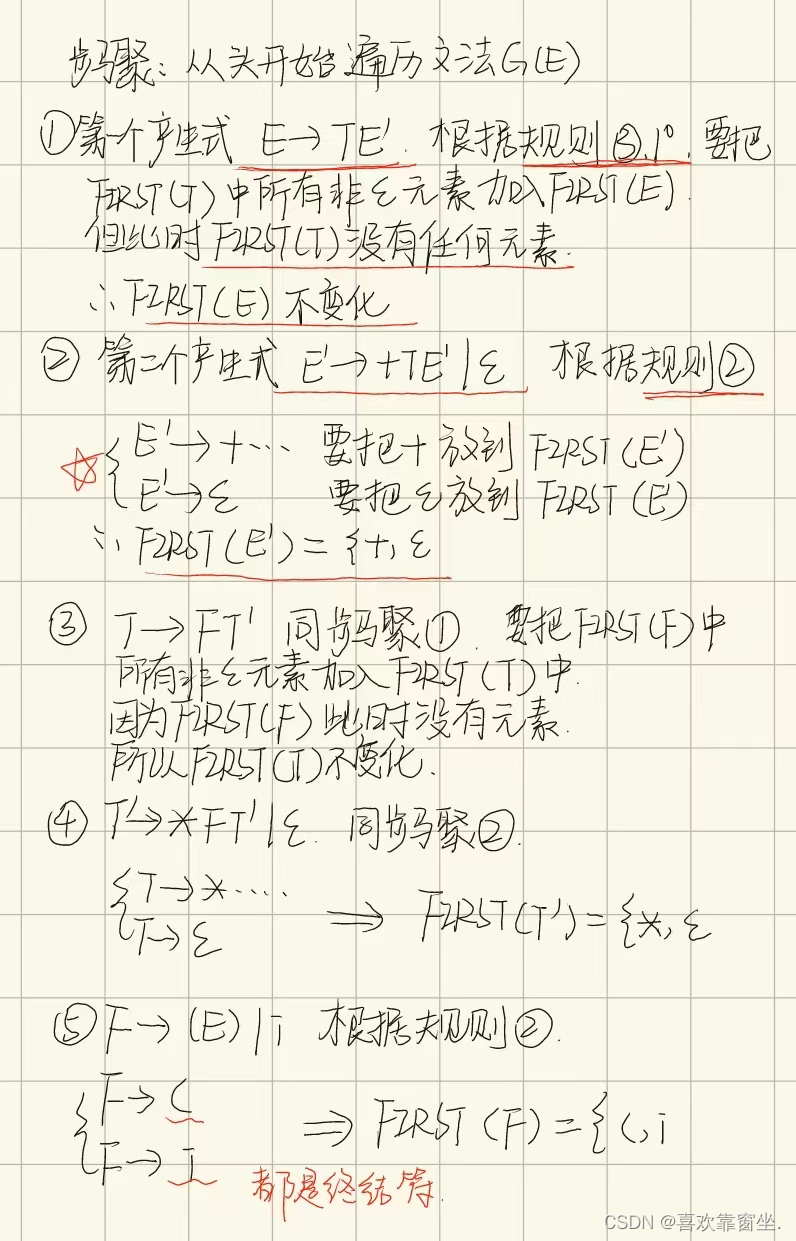 步骤：从头开始遍历文法G(E)
①第一个产生式 E→TE'. 根据规则③.1°. 要把
FIRST(T)中所有非ε元素加入FIRST(E).
但此时FIRST(T)没有任何元素.
∴FIRST(E)不变化
② 第二个产生式 E'→+TE'|ε 根据规则②
{ E'→+… 要把+放到 FIRST(E')
E'→ε 要把ε放到 FIRST(E')
∴ FIRST(E')={+, ε
③ T→FT' 同步骤①. 要把FIRST(F)中
所有非ε元素加入FIRST(T)中.
因为FIRST(F)此时没有元素.
所以FIRST(T)不变化.
④ T'→*FT'|ε. 同步骤②.
{ T→*.....
T→ε ⇒ FIRST(T')={*, ε
⑤ F→(E)|i 根据规则②.
{ F→(
F→i ⇒ FIRST(F)={(, i
都是终结符.
CSDN @喜欢靠窗坐.